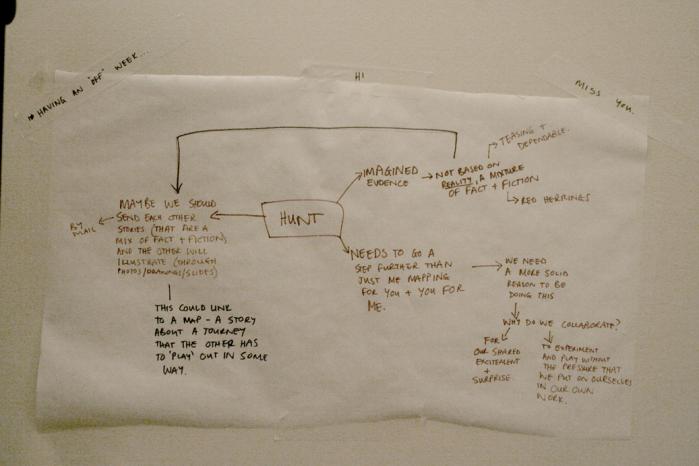 HAVING AN "OFF" WEEK...
HI
MISS YOU.
TEASING +
DEPENDABLE.
IMAGINED
EVIDENCE
NOT BASED ON
REALITY, A MIXTURE
OF FACT + FICTION
RED HERRINGS
HUNT
MAYBE WE SHOULD
SEND EACH OTHER
STORIES (THAT ARE A
MIX OF FACT + FICTION)
AND THE OTHER WILL
ILLUSTRATE (THROUGH
PHOTOS/DRAWINGS/SLIDES)
BY
MAIL
THIS COULD LINK
TO A MAP - A STORY
ABOUT A JOURNEY
THAT THE OTHER HAS
TO 'PLAY' OUT IN SOME
WAY.
NEEDS TO GO A
STEP FURTHER THAN
JUST ME MAPPING
FOR YOU + YOU FOR
ME.
WE NEED
A MORE SOLID
REASON TO BE
DOING THIS
WHY DO WE COLLABORATE?
FOR
OUR SHARED
EXCITEMENT
+
SURPRISE.
TO EXPERIMENT
AND PLAY WITHOUT
THE PRESSURE THAT
WE PUT ON OURSELVES
IN OUR OWN
WORK.